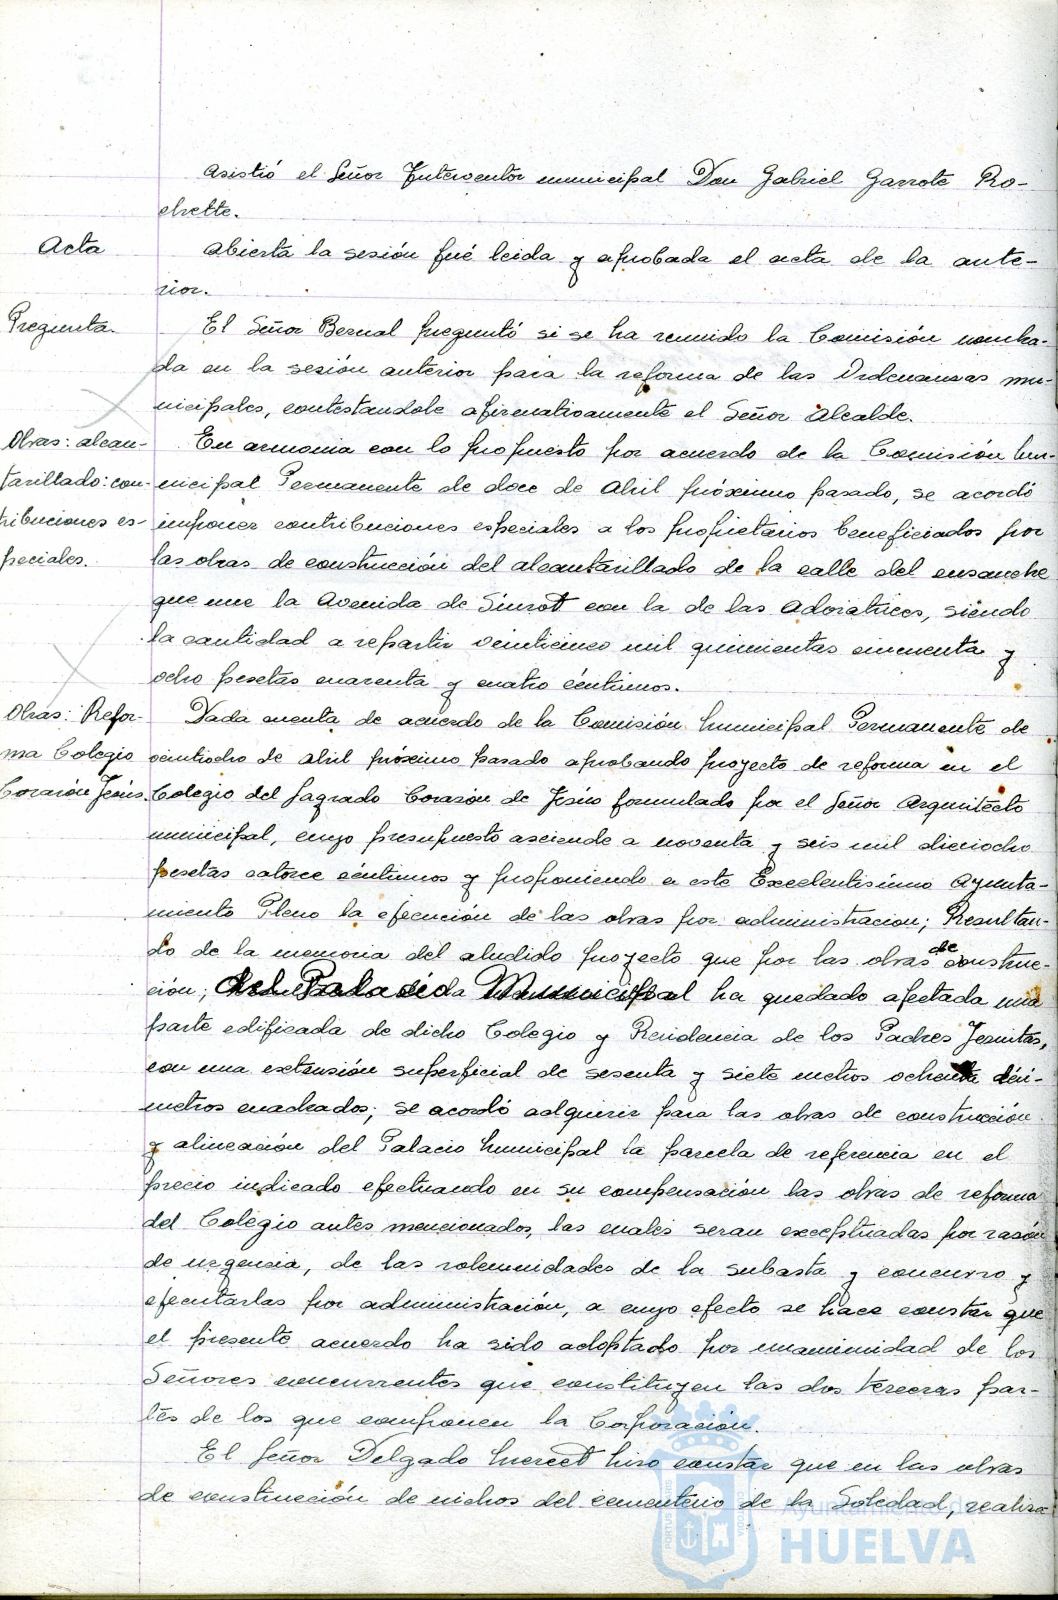 asistió el Señor Interventor municipal Don Gabriel Garrote Ro-
chette.
Acta
Abierta la sesión fué leida y aprobada el acta de la ante-
rior.
Pregunta.
El Señor Bernal preguntó si se ha reunido la Comisión nombra-
da en la sesión anterior para la reforma de las Ordenanzas mu-
nicipales, contestandole afirmativamente el Señor Alcalde.
Obras: alcan-
tarillado: con-
tribuciones es-
peciales.
En armonia con lo propuesto por acuerdo de la Comisión Mu-
nicipal Permanente de doce de Abril próximo pasado, se acordó
imponer contribuciones especiales a los propietarios beneficiados por
las obras de construcción del alcantarillado de la calle del ensanche
que une la Avenida de Siurot con la de las Adoratrices, siendo
la cantidad a repartir veinticinco mil quinientas cincuenta y
ocho pesetas cuarenta y cuatro céntimos.
Obras: Refor-
ma Colegio
Corazón Jesús.
Dada cuenta de acuerdo de la Comisión Municipal Permanente de
veintiocho de Abril próximo pasado aprobando proyecto de reforma en el
Colegio del Sagrado Corazón de Jesús formulado por el Señor Arquitecto
municipal, cuyo presupuesto asciende a noventa y seis mil dieciocho
pesetas catorce céntimos y proponiendo a este Excelentisimo Ayunta-
miento Pleno la ejecución de las obras por administracion; Resultan-
do de la memoria del aludido proyecto que por las obras de construc-
ción; del Palacio Municipal ha quedado afectada una
parte edificada de dicho Colegio y Residencia de los Padres Jesuitas,
con una extensión superficial de sesenta y siete metros ochenta decí-
metros cuadrados; se acordó adquirir para las obras de construcción
y alineación del Palacio Municipal la parcela de referencia en el
precio indicado efectuando en su compensación las obras de reforma
del Colegio antes mencionados, las cuales seran exceptuadas por razón
de urgencia, de las solemnidades de la subasta y concurso y
ejecutarlas por administración, a cuyo efecto se hace constar que
el presente acuerdo ha sido adoptado por unanimidad de los
Señores concurrentes que constituyen las dos terceras par-
tes de los que componen la Corporación.
El Señor Delgado hizo constar que en las obras
de construcción de nichos del cementerio de la Soledad, realiza
Ayuntamiento de
HUELVA